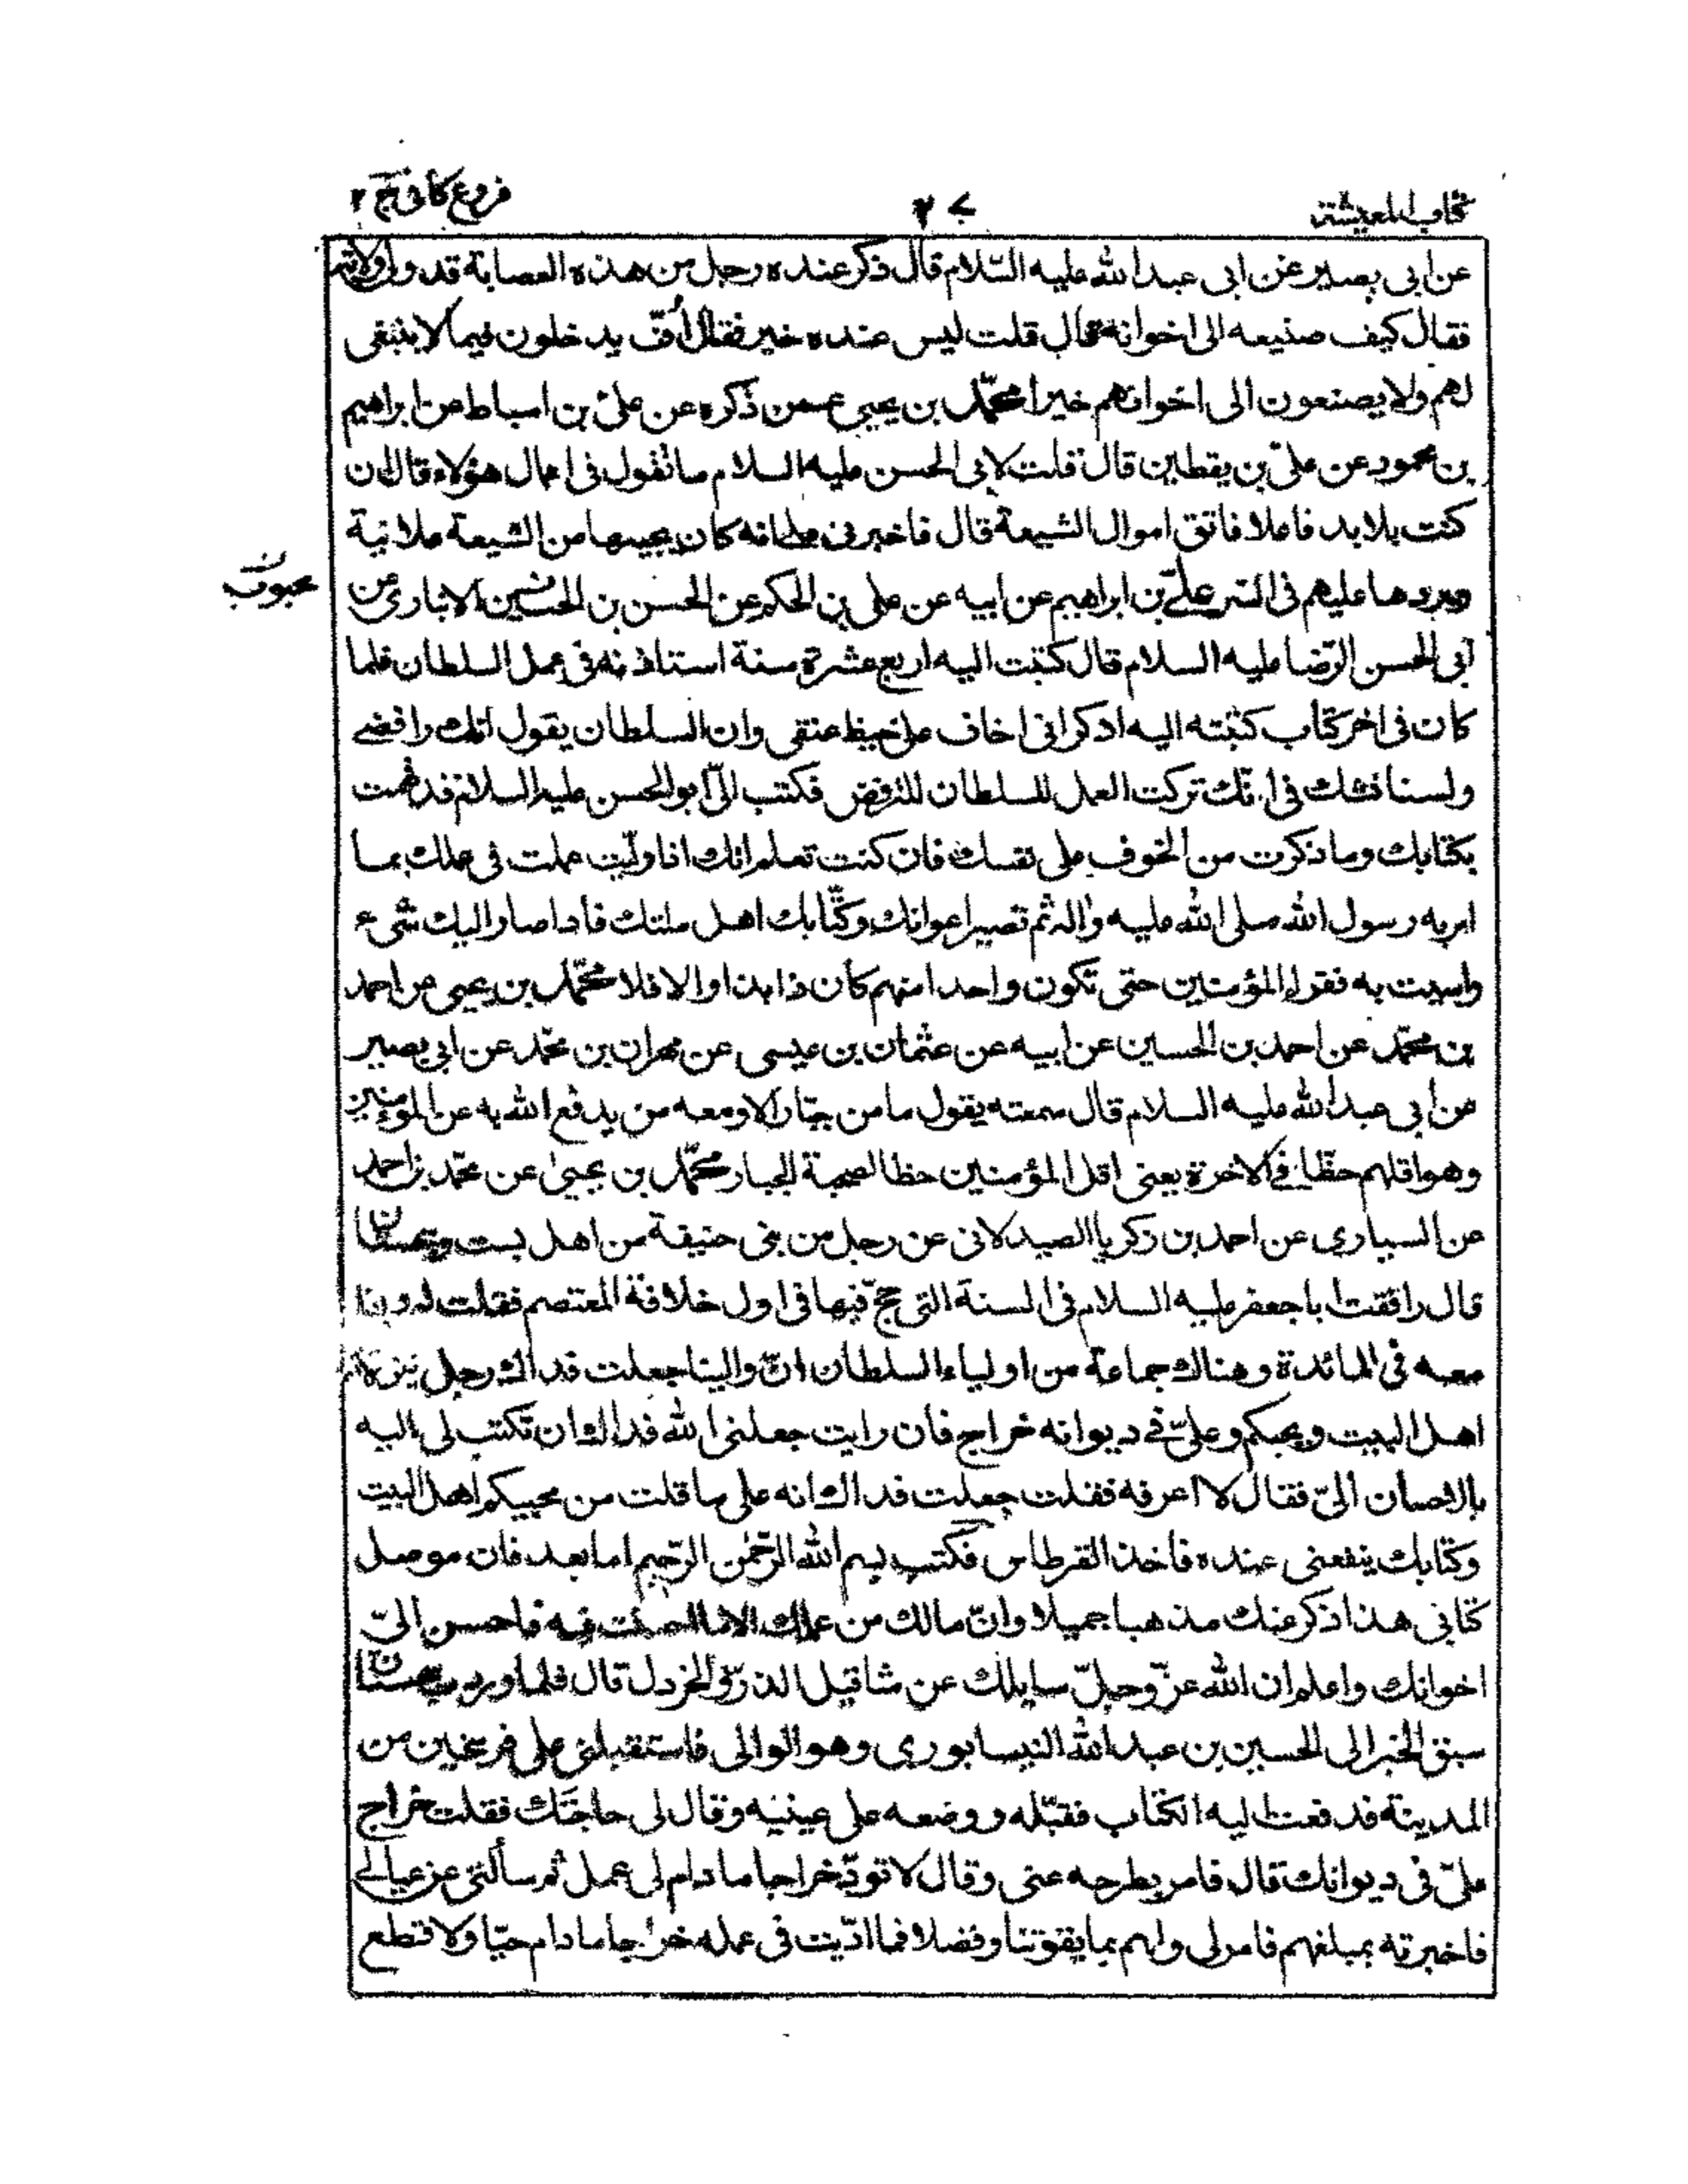 كتاب المعيشة
فروع كافى ج ٢
عن ابى بصير عن ابى عبد الله عليه السّلام قال ذكر عنده رجل من هذه العصابة قد ولى ولاية
فقال كيف صنيعه الى اخوانه قال قلت ليس عنده خير فقال أفّ يدخلون فيما لا ينبغى
لهم ولا يصنعون الى اخوانهم خيرا محمّد بن يحيى عمن ذكره عن علىّ بن اسباط عن ابراهيم
بن محمود عن علىّ بن يقطين قال قلت لابى الحسن عليه السلام ما تقول فى اعمال هؤلاء قال ان
كنت لا بد فاعلا فاتق اموال الشيعة قال فاخبرنى على انه كان يجبيها من الشيعة علانية
ويردها عليهم فى السر علىّ بن ابراهيم عن ابيه عن على بن الحكم عن الحسن بن الحسين الانبارى عن
محبوب
ابى الحسن الرّضا عليه السلام قال كتبت اليه اربع عشرة سنة استاذنه فى عمل السلطان فلما
كان فى اخر كتاب كتبته اليه اذكر انى اخاف على خيط عنقى وان السلطان يقول انك رافضى
ولسنا نشك فى انّك تركت العمل للسلطان للترفض فكتب الىّ ابو الحسن عليه السلام قد فهمت
بكتابك وما ذكرت من الخوف على نفسك فان كنت تعلم انك اذا ولّيت عملت فى عملك بما
امر به رسول الله صلى الله عليه واله ثم تصير اعوانك وكتّابك اهل ملتك فاذا صار اليك شىء
واسيت به فقراء المؤمنين حتى تكون واحدا منهم كان ذا بذا والا فلا محمّد بن يحيى عن احمد
بن محمّد عن احمد بن الحسين عن ابيه عن عثمان بن عيسى عن مهران بن محمّد عن ابى بصير
عن ابى عبد الله عليه السلام قال سمعته يقول ما من جبّار الا ومعه من يدفع الله به عن المؤمنين
وهو اقلهم حظّا فى الاخرة يعنى اقل المؤمنين حظا لصحبة الجبار محمّد بن يحيى عن محمّد بن احمد
عن السيارى عن احمد بن زكريا الصيدلانى عن رجل من بنى حنيفة من اهل بست وسجستان
قال رافقت ابا جعفر عليه السلام فى السنة التى حجّ فيها فى اول خلافة المعتصم فقلت له وانا
معه فى المائدة وهناك جماعة من اولياء السلطان انّ والينا جعلت فداك رجل يتولاكم
اهل البيت ويحبكم وعلىّ فى ديوانه خراج فان رايت جعلنى الله فداك ان تكتب لى اليه
بالاحسان الىّ فقال لا اعرفه فقلت جعلت فداك انه على ما قلت من محبيكم اهل البيت
وكتابك ينفعنى عنده فاخذ القرطاس فكتب بسم الله الرّحمٰن الرّحيم اما بعد فان موصل
كتابى هذا ذكر عنك مذهبا جميلا وانّ مالك من عملك الا ما احسنت فيه فاحسن الىّ
اخوانك واعلم ان الله عزّ وجلّ سايلك عن مثاقيل الذرّ والخردل قال فلما ورد سجستان
سبق الخبر الى الحسين بن عبد الله النيسابورى وهو الوالى فاستقبلنى على فرسخين من
المدينة فدفعت اليه الكتاب فقبّله ووضعه على عينيه وقال لى حاجتك فقلت خراج
علىّ فى ديوانك قال فامر بطرحه عنى وقال لا تودّ خراجا ما دام لى عمل ثم سألنى عن عيالى
فاخبرته بمبلغهم فامر لى ولهم بما يقوتنا وفضلا فما ادّيت فى عمله خراجا ما دام حيّا ولا قطع